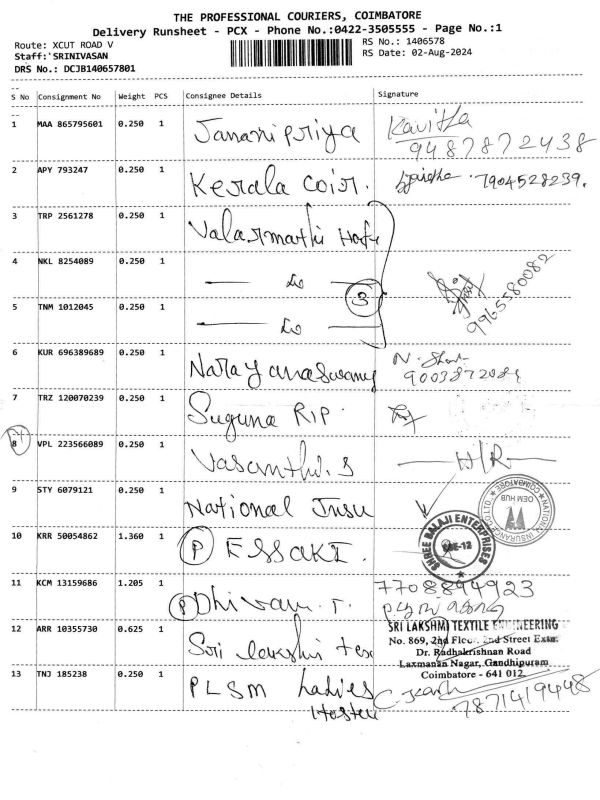 THE PROFESSIONAL COURIERS, COIMBATORE
Delivery Runsheet - PCX - Phone No.:0422-3505555 - Page No.:1
Route: XCUT ROAD V RS No.: 1406578
Staff:'SRINIVASAN RS Date: 02-Aug-2024
DRS No.: DCJB140657801
S No Consignment No Weight PCS Consignee Details Signature
1 MAA 865795601 0.250 1 Jananipriya Kavitha
9487872438
2 APY 793247 0.250 1 Kerala Coir. 7904528239.
3 TRP 2561278 0.250 1 Valarmathi
4 NKL 8254089 0.250 1 9965580082
3
5 TNM 1012045 0.250 1
6 KUR 696389689 0.250 1 Narayanaswamy N.
7 TRZ 120070239 0.250 1 Suguna RIP.
8 VPL 223566089 0.250 1 Vasanthi. S H/R
9 STY 6079121 0.250 1 National Insu
NATIONAL INSURANCE CO LTD. COIMBATORE OEM HUB
10 KRR 50054862 1.360 1 P ESSAKI.
SHREE BALAJI ENTERPRISES CBE-12
11 KCM 13159686 1.205 1 P 7708894923
12 ARR 10355730 0.625 1 Sri lakshi tex
SRI LAKSHMI TEXTILE ENGINEERING
No. 869, 2nd Floor, 2nd Street Extn.
Dr. Radhakrishnan Road
Laxmanan Nagar, Gandhipuram
Coimbatore - 641 012.
13 TNJ 185238 0.250 1 PLSM Ladies
Hostel 7871419448